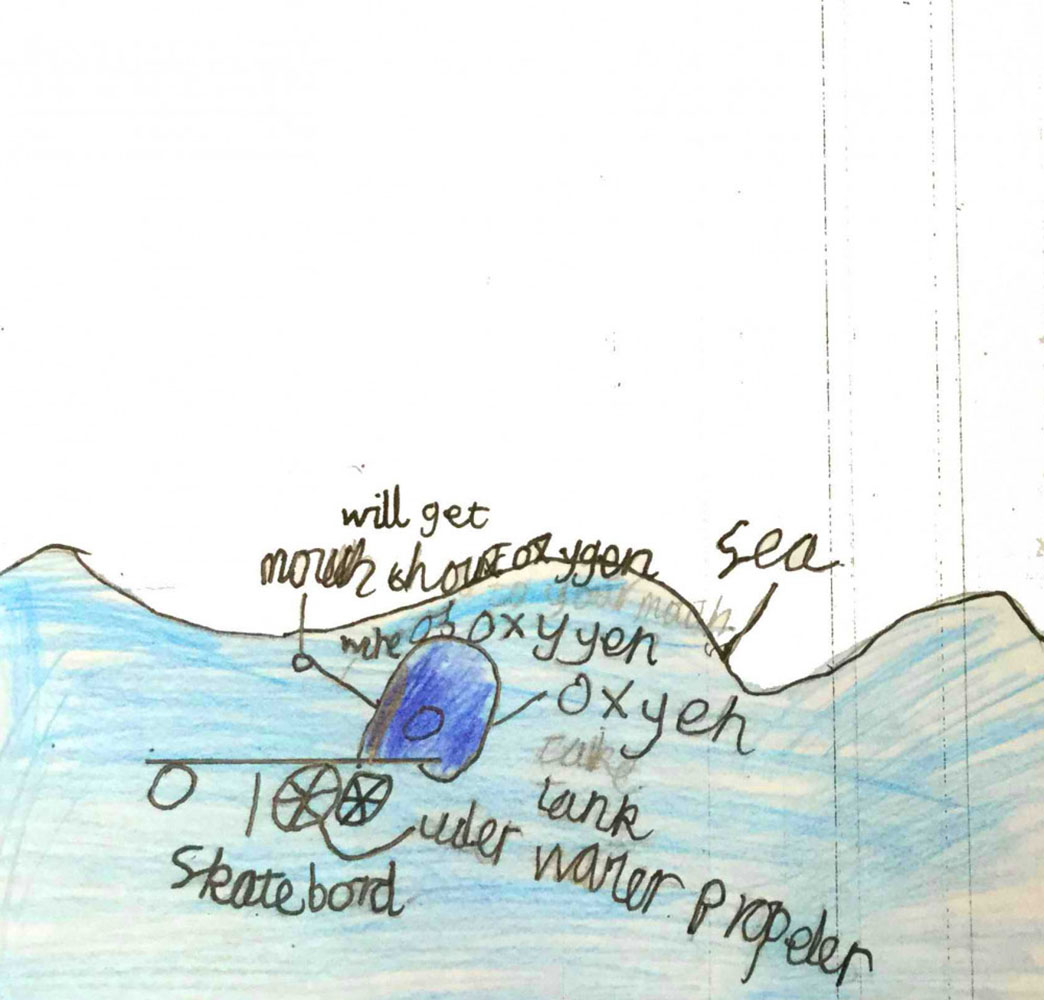 will get
mouth shout oxygen
to your mouth
Sea
of oxyyen
oxyen
tank
uuder water propeler
Skatebord